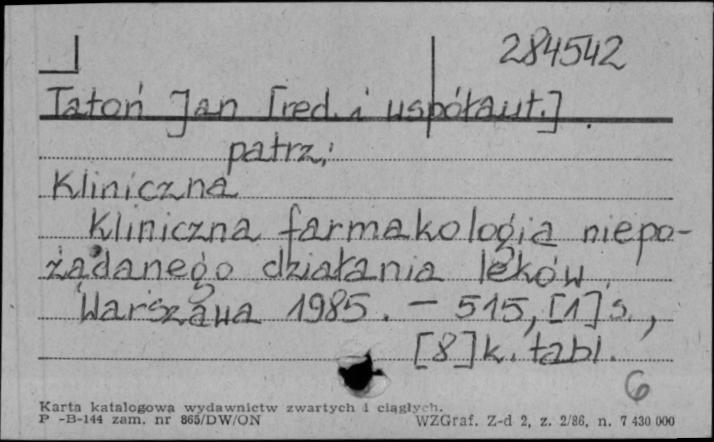 284542
Tatoń Jan [red. i współaut.].
patrz:
Kliniczna
Kliniczna farmakologia niepo-
żądanego działania leków.
Warszawa 1985. – 515, [1] s.,
[8] k. tabl.
6
Karta katalogowa wydawnictw zwartych i ciągłych.
P -B-144 zam. nr 865/DW/ON WZGraf. Z-d 2, z. 2/86, n. 7 430 000